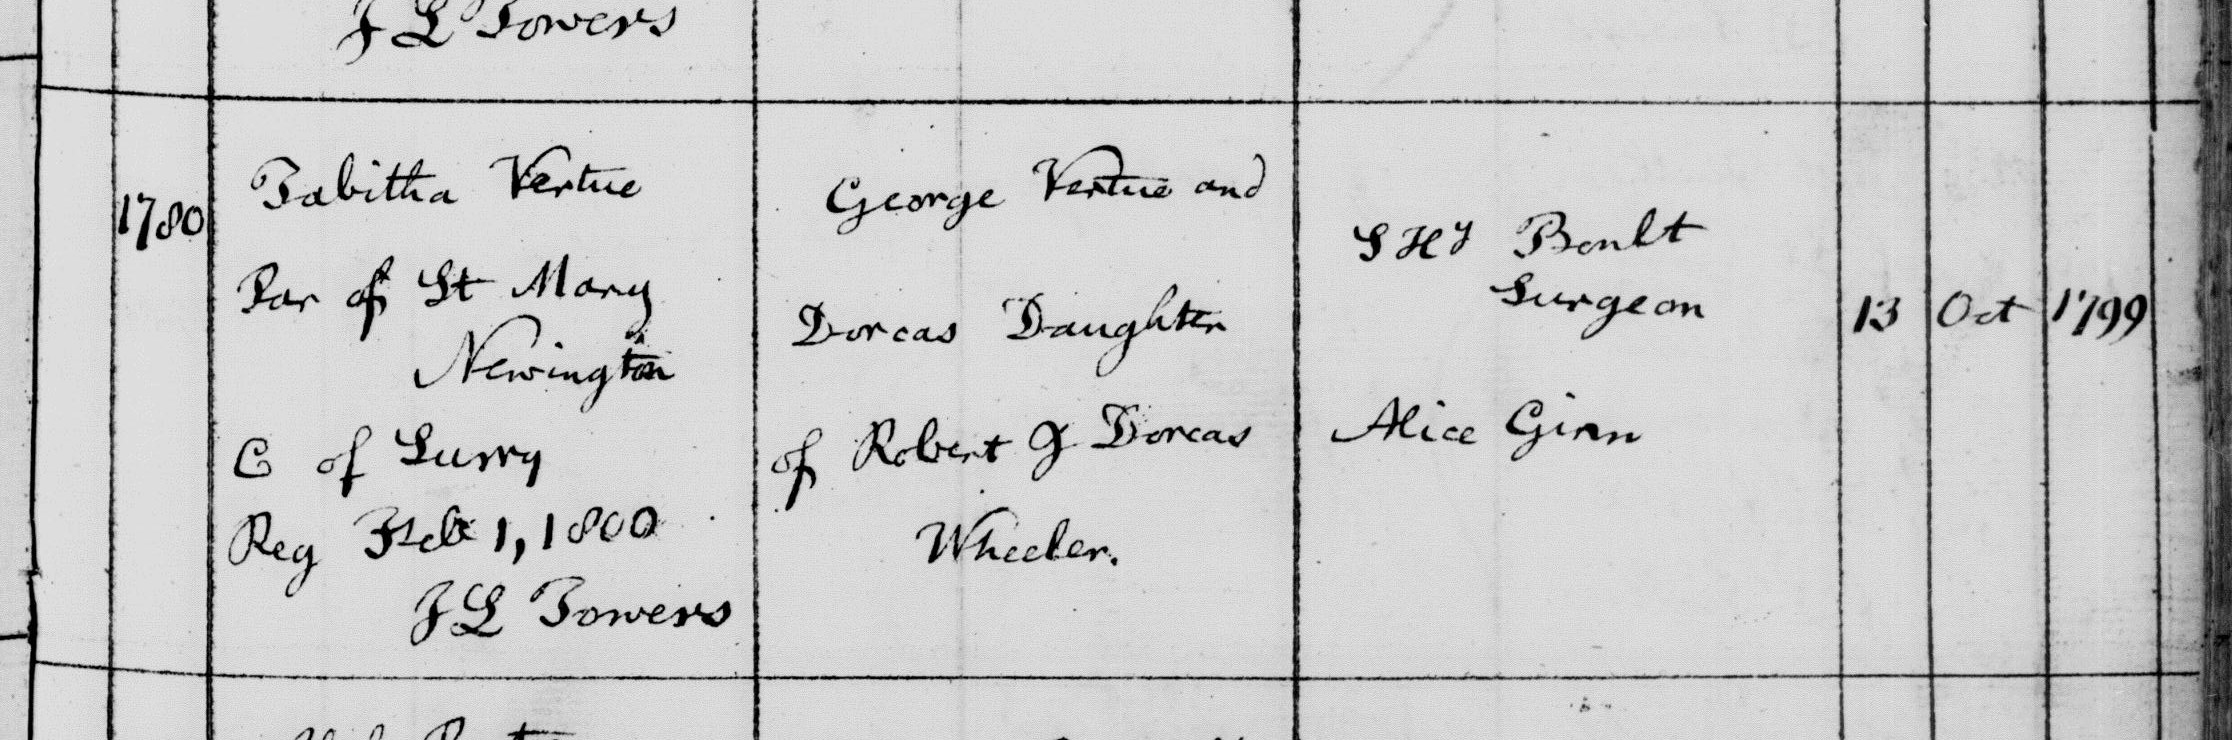 J L Towers
1780
Tabitha Vertue
Par of St Mary
Newington
C of Surry
Reg Feb 1, 1800
J L Towers
George Vertue and
Dorcas Daughter
of Robert & Dorcas
Wheeler.
S Hy Boult
Surgeon
Alice Ginn
13 Oct 1799